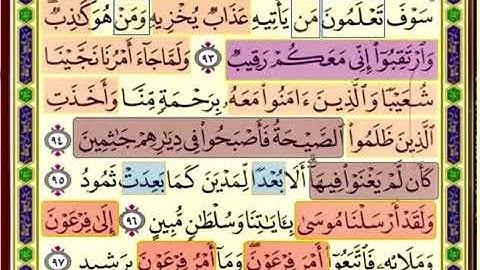 سَوْفَ تَعْلَمُونَ مَن يَأْتِيهِ عَذَابٌ يُخْزِيهِ وَمَنْ هُوَ كَٰذِبٌ
وَٱرْتَقِبُوٓا۟ إِنِّى مَعَكُمْ رَقِيبٌ ٩٣ وَلَمَّا جَآءَ أَمْرُنَا نَجَّيْنَا
شُعَيْبًا وَٱلَّذِينَ ءَامَنُوا۟ مَعَهُۥ بِرَحْمَةٍ مِّنَّا وَأَخَذَتِ
ٱلَّذِينَ ظَلَمُوا۟ ٱلصَّيْحَةُ فَأَصْبَحُوا۟ فِى دِيَٰرِهِمْ جَٰثِمِينَ ٩٤
كَأَن لَّمْ يَغْنَوْا۟ فِيهَآ أَلَا بُعْدًا لِّمَدْيَنَ كَمَا بَعِدَتْ ثَمُودُ ٩٥
وَلَقَدْ أَرْسَلْنَا مُوسَىٰ بِـَٔايَٰتِنَا وَسُلْطَٰنٍ مُّبِينٍ ٩٦ إِلَىٰ فِرْعَوْنَ
وَمَلَإِي۟هِۦ فَٱتَّبَعُوٓا۟ أَمْرَ فِرْعَوْنَ وَمَآ أَمْرُ فِرْعَوْنَ بِرَشِيدٍ ٩٧